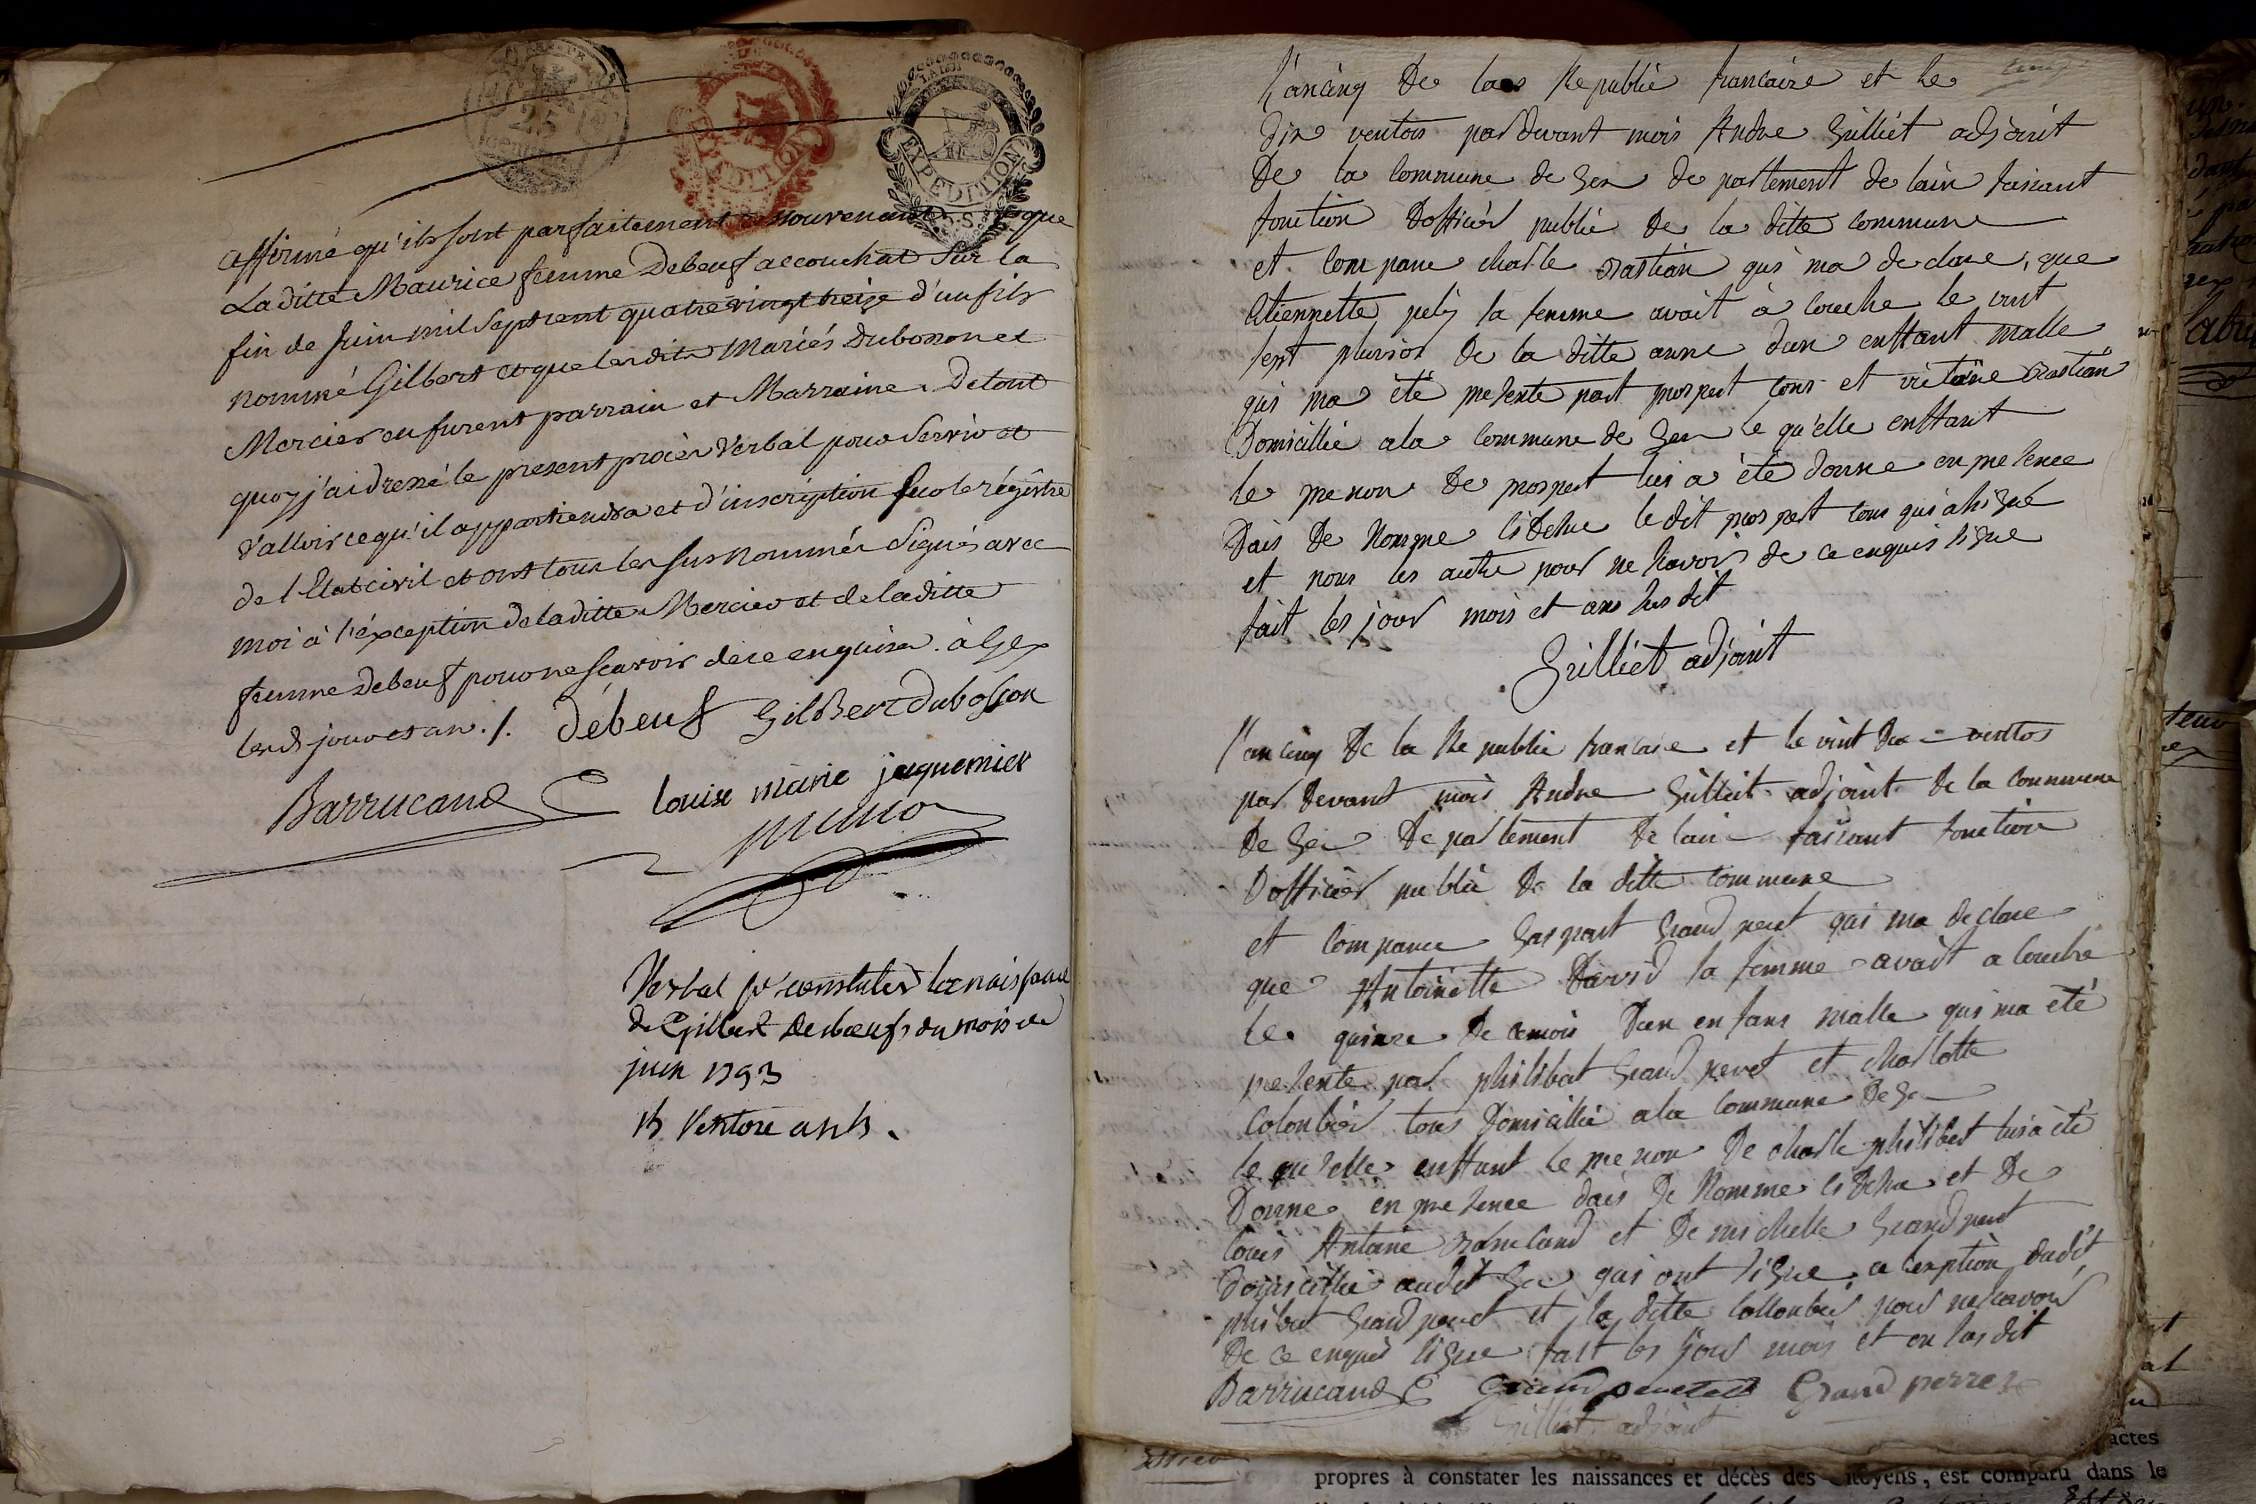 25
LA LOI
EXPEDITION
EXPEDITION
affirmé qu'ils sont parfaitement souvenant que
Laditte Maurice femme Debeuf accouchat sur la
fin de Juin mil sept cent quatre vingt treize d'un fils
nommé Gilbert et que lesdits Mariés Dubosson et
Mercier en furent parrain et Marraine. De tout
quoy j'ai dressé le present procès Verbal pour servir et
valloir ce qu'il appartiendra et d'inscription sur le régistre
de l'Etat civil et ont tous les susnommés signés avec
moi à l'éxception de laditte Mercier et de laditte
femme Debeuf pour ne sçavoir de ce enquises. à Gex
lesd jour et an ./. débeuf Gilbert dubosson
Barrucand louise marie jaquemier
Verbal pr constater la naissance
de Gilbert Deboeuf du mois de
juin 1793
15 Ventose an 5.
l'ancinq De la Republic francaire et le
Dix ventos pardevant mois Andre Grilliet adjoint
De la Commune de Gex de partement de lain faisant
fonction Dofficier public De la ditte commune
et Compane charle Bastian qui ma declare, que
Etiennette pely sa femme avait à couche le vint
sept pluvios De la ditte anne dun enffant malle
qui ma été presente part prospert tous et victoire Bastian
Domicillie ala Commune de Gex le qu'elle enffant
le prenon De prospert lui a été donne en presence
Dais De Nomme cidesue le dit prospert tous qui a signé
et nous les autre pour ne savoir de ce enquis signe
fait les jour mois et an susdit
Grilliet adjoint
l'an cinq De la Republic francaise et le vint Du ventos
par devant mois Andre Grilliet adjoint De la Commune
De Gex De partement De lain faisant fonction
Dofficier public De la ditte commune
et comparu Gaspart Grand peret qui ma declare
que Antoinette David sa femme avait a couche
le quinze De cemois Dun enfans malle qui ma été
presente par philibat Grand peret et charlotte
Colonbier tous Domicillie ala commune De Gex
le qu'elle enffant le prenon De charle philibert lui a été
Donne en presence dais De Nomme cidesue et De
louis Antoine et De michelle Grand peret
Domicillie audit Gex qui ont signe a lexption dudit
philibert Grand peret et la ditte Collonbier pour ne savoir
De ce enquis signe fait les jour mois et an susdit
Barrucand Grand perret
Grilliet adjoint
actes
propres à constater les naissances et décès des Citoyens, est comparu dans le